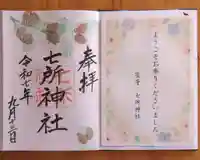 奉拝
七所神社
令和七年
九月十三日
ようこそお参りくださいました
七所神社